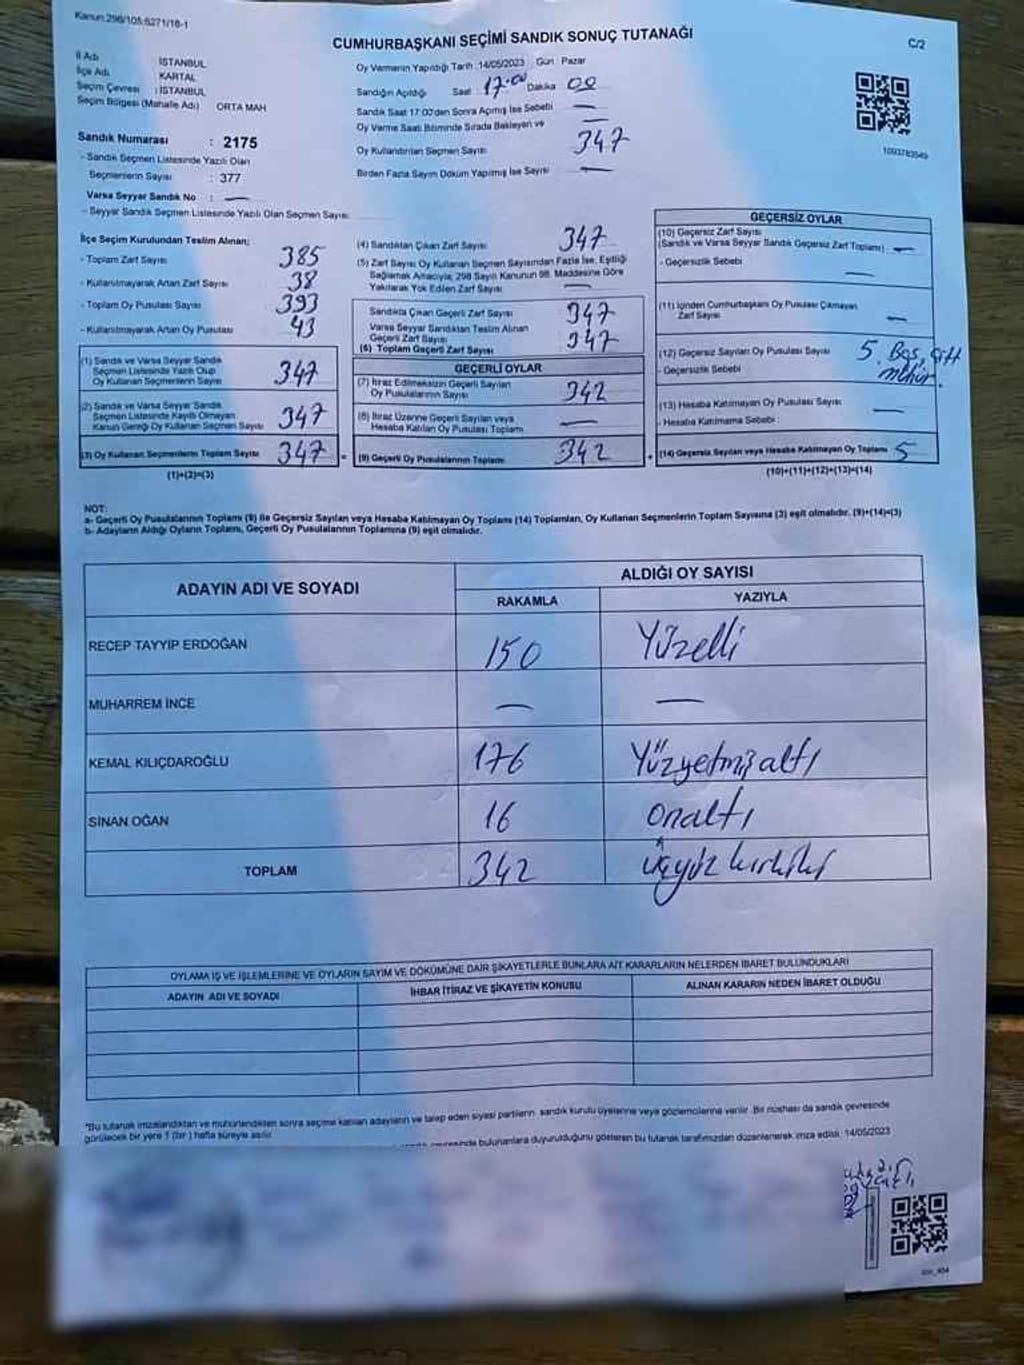 Kanun:298/105;6271/18-1
CUMHURBAŞKANI SEÇİMİ SANDIK SONUÇ TUTANAĞI
C/2
İl Adı : İSTANBUL
İlçe Adı : KARTAL
Seçim Çevresi : İSTANBUL
Seçim Bölgesi (Mahalle Adı) ORTA MAH
Sandık Numarası : 2175
- Sandık Seçmen Listesinde Yazılı Olan
Seçmenlerin Sayısı : 377
Varsa Seyyar Sandık No : —
- Seyyar Sandık Seçmen Listesinde Yazılı Olan Seçmen Sayısı:
Oy Vermenin Yapıldığı Tarih :14/05/2023 Gün: Pazar
Sandığın Açıldığı Saat: 17.00 Dakika 00
Sandık Saat 17:00'den Sonra Açılmış İse Sebebi —
Oy Verme Saati Bitiminde Sırada Bekleyen ve —
Oy Kullandırılan Seçmen Sayısı 347
Birden Fazla Sayım Döküm Yapılmış İse Sayısı —
1003783549
İlçe Seçim Kurulundan Teslim Alınan;
- Toplam Zarf Sayısı 385
- Kullanılmayarak Artan Zarf Sayısı 38
- Toplam Oy Pusulası Sayısı 393
- Kullanılmayarak Artan Oy Pusulası 43
(1) Sandık ve Varsa Seyyar Sandık
Seçmen Listesinde Yazılı Olup
Oy Kullanan Seçmenlerin Sayısı 347
(2) Sandık ve Varsa Seyyar Sandık
Seçmen Listesinde Kayıtlı Olmayan
Kanun Gereği Oy Kullanan Seçmen Sayısı 347
(3) Oy Kullanan Seçmenlerin Toplam Sayısı 347 =
(1)+(2)=(3)
(4) Sandıktan Çıkan Zarf Sayısı 347
(5) Zarf Sayısı Oy Kullanan Seçmen Sayısından Fazla İse, Eşitliği
Sağlamak Amacıyla, 298 Sayılı Kanunun 98. Maddesine Göre
Yakılarak Yok Edilen Zarf Sayısı —
Sandıkta Çıkan Geçerli Zarf Sayısı 347
Varsa Seyyar Sandıktan Teslim Alınan
Geçerli Zarf Sayısı
(6) Toplam Geçerli Zarf Sayısı 347
GEÇERLİ OYLAR
(7) İtiraz Edilmeksizin Geçerli Sayılan
Oy Pusulalarının Sayısı 342
(8) İtiraz Üzerine Geçerli Sayılan veya
Hesaba Katılan Oy Pusulası Toplamı —
(9) Geçerli Oy Pusulalarının Toplamı 342 +
GEÇERSİZ OYLAR
(10) Geçersiz Zarf Sayısı
(Sandık ve Varsa Seyyar Sandık Geçersiz Zarf Toplamı) —
- Geçersizlik Sebebi —
(11) İçinden Cumhurbaşkanı Oy Pusulası Çıkmayan
Zarf Sayısı —
(12) Geçersiz Sayılan Oy Pusulası Sayısı 5. Boş, çift
- Geçersizlik Sebebi mühür.
(13) Hesaba Katılmayan Oy Pusulası Sayısı —
- Hesaba Katılmama Sebebi :
(14) Geçersiz Sayılan veya Hesaba Katılmayan Oy Toplamı 5
(10)+(11)+(12)+(13)=(14)
NOT:
a- Geçerli Oy Pusulalarının Toplamı (9) ile Geçersiz Sayılan veya Hesaba Katılmayan Oy Toplamı (14) Toplamları, Oy Kullanan Seçmenlerin Toplam Sayısına (3) eşit olmalıdır. (9)+(14)=(3)
b- Adayların Aldığı Oyların Toplamı, Geçerli Oy Pusulalarının Toplamına (9) eşit olmalıdır.
ADAYIN ADI VE SOYADI
ALDIĞI OY SAYISI
RAKAMLA YAZIYLA
RECEP TAYYİP ERDOĞAN 150 Yüzelli
MUHARREM İNCE — —
KEMAL KILIÇDAROĞLU 176 Yüzyetmişaltı
SİNAN OĞAN 16 onaltı
TOPLAM 342 üçyüz kırkiki
OYLAMA İŞ VE İŞLEMLERİNE VE OYLARIN SAYIM VE DÖKÜMÜNE DAİR ŞİKAYETLERLE BUNLARA AİT KARARLARIN NELERDEN İBARET BULUNDUKLARI
ADAYIN ADI VE SOYADI İHBAR İTİRAZ VE ŞİKAYETİN KONUSU ALINAN KARARIN NEDEN İBARET OLDUĞU
*Bu tutanak imzalandıktan ve mühürlendikten sonra seçime katılan adayların ve talep eden siyasi partilerin, sandık kurulu üyelerine veya gözlemcilerine verilir. Bir nüshası da sandık çevresinde
görülecek bir yere 1 (bir) hafta süreyle asılır.
çevresinde bulunanlara duyurulduğunu gösteren bu tutanak tarafımızdan düzenlenerek imza edildi. 14/05/2023